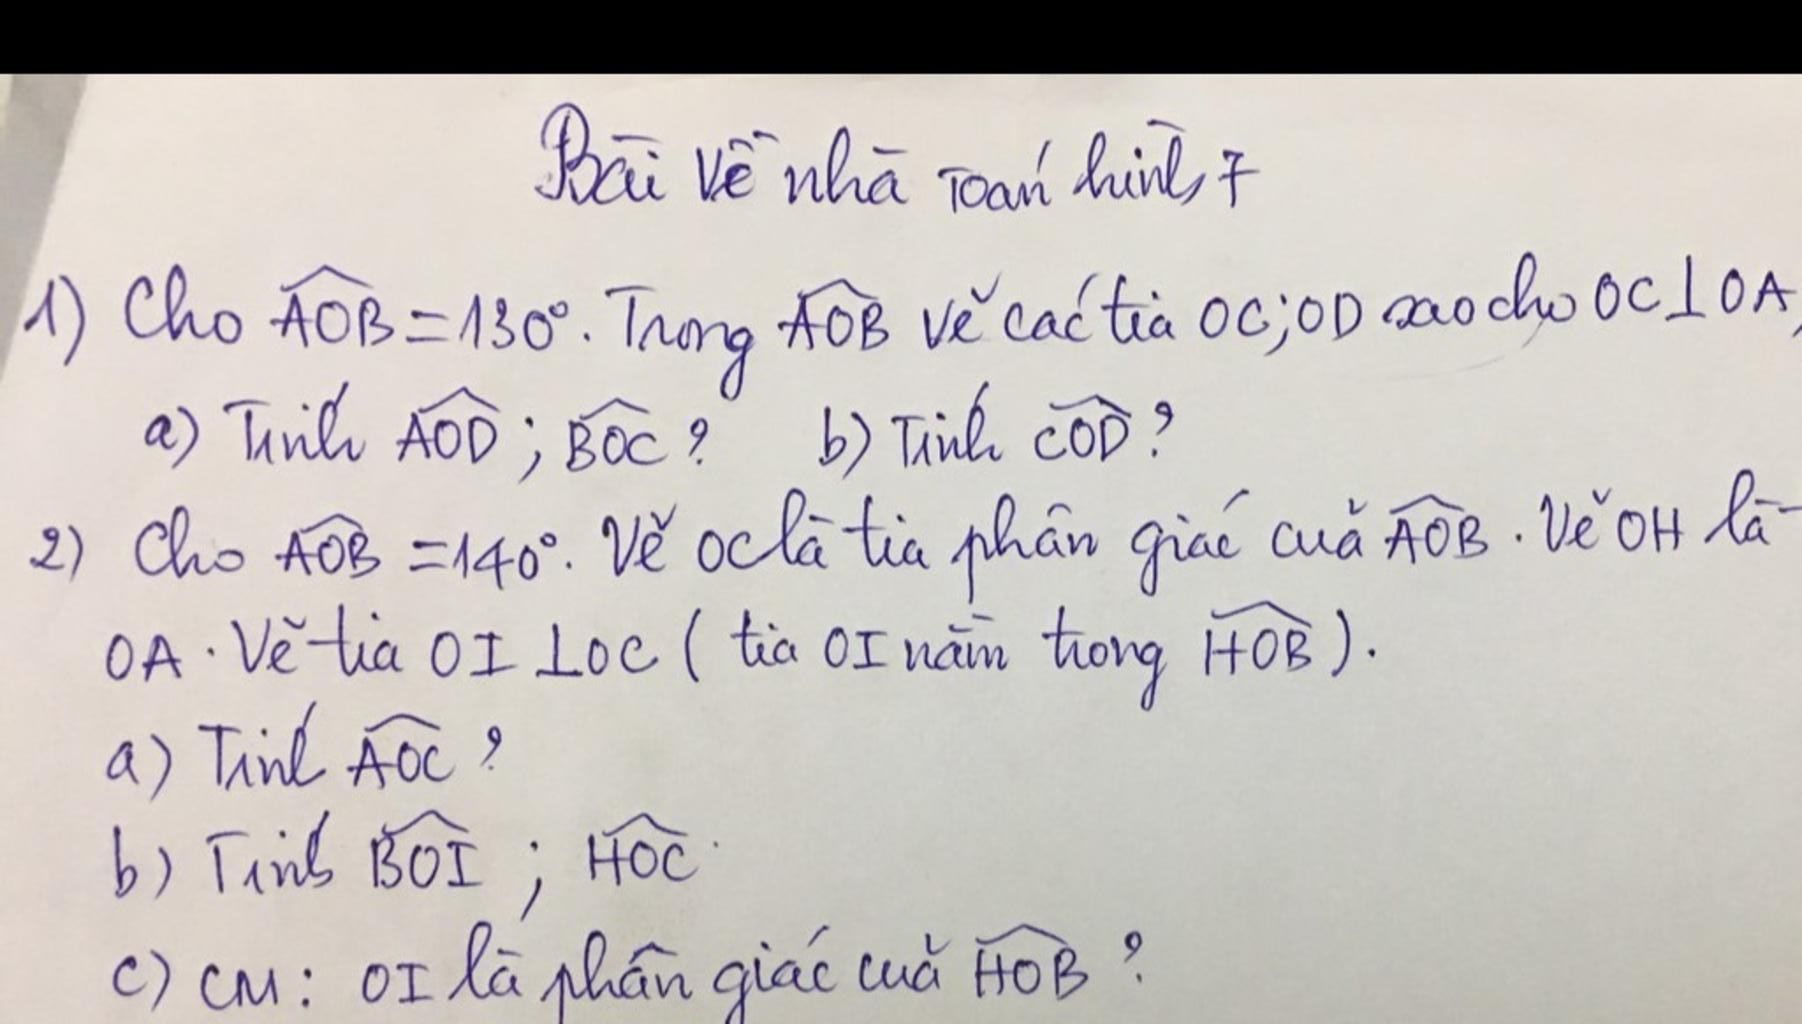 Bài về nhà Toán hình 7
1) Cho AOB = 130°. Trong AOB vẽ các tia OC; OD sao cho OC ⊥ OA,
a) Tính AOD ; BOC ? b) Tính COD ?
2) Cho AOB = 140°. Vẽ OC là tia phân giác của AOB. Vẽ OH là
OA. Vẽ tia OI ⊥ OC ( tia OI nằm trong HOB ).
a) Tính AOC ?
b) Tính BOI ; HOC.
c) CM : OI là phân giác của HOB ?